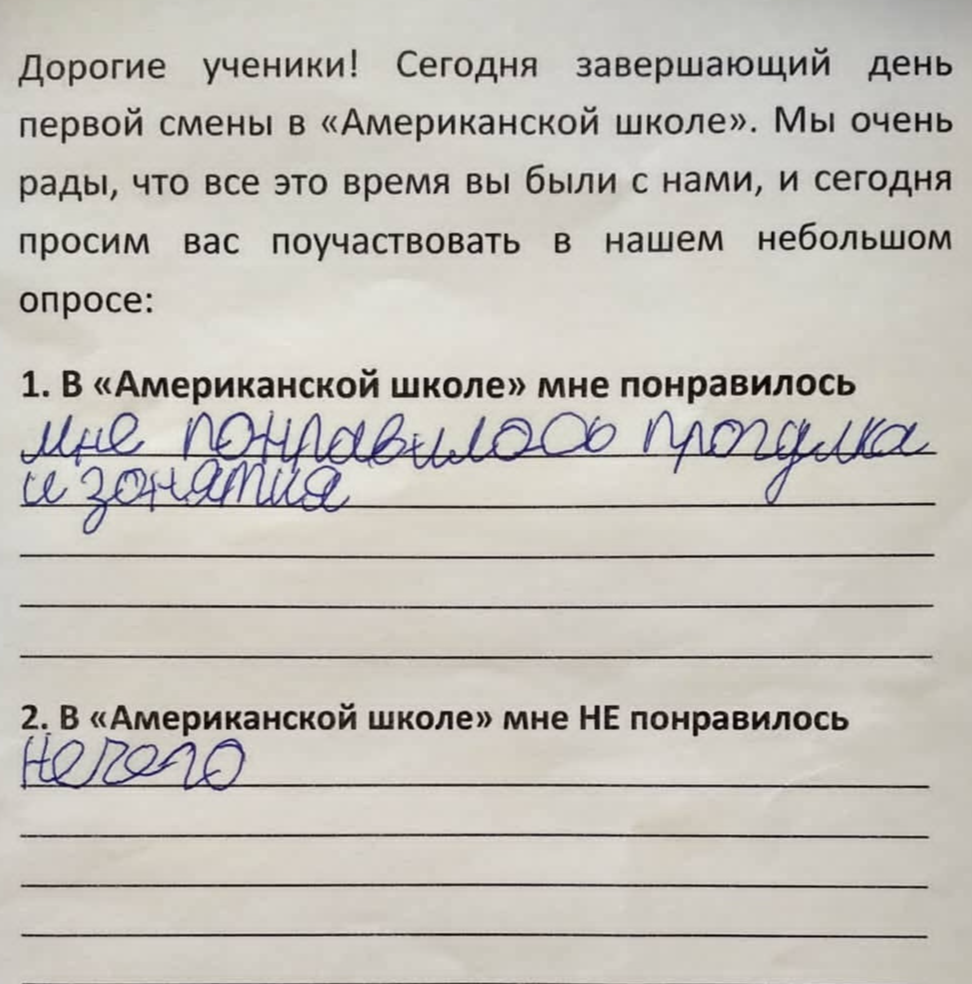 Дорогие ученики! Сегодня завершающий день
первой смены в «Американской школе». Мы очень
рады, что все это время вы были с нами, и сегодня
просим вас поучаствовать в нашем небольшом
опросе:
1. В «Американской школе» мне понравилось
мне понравилось прогулка
и зонятия
2. В «Американской школе» мне НЕ понравилось
Нечего